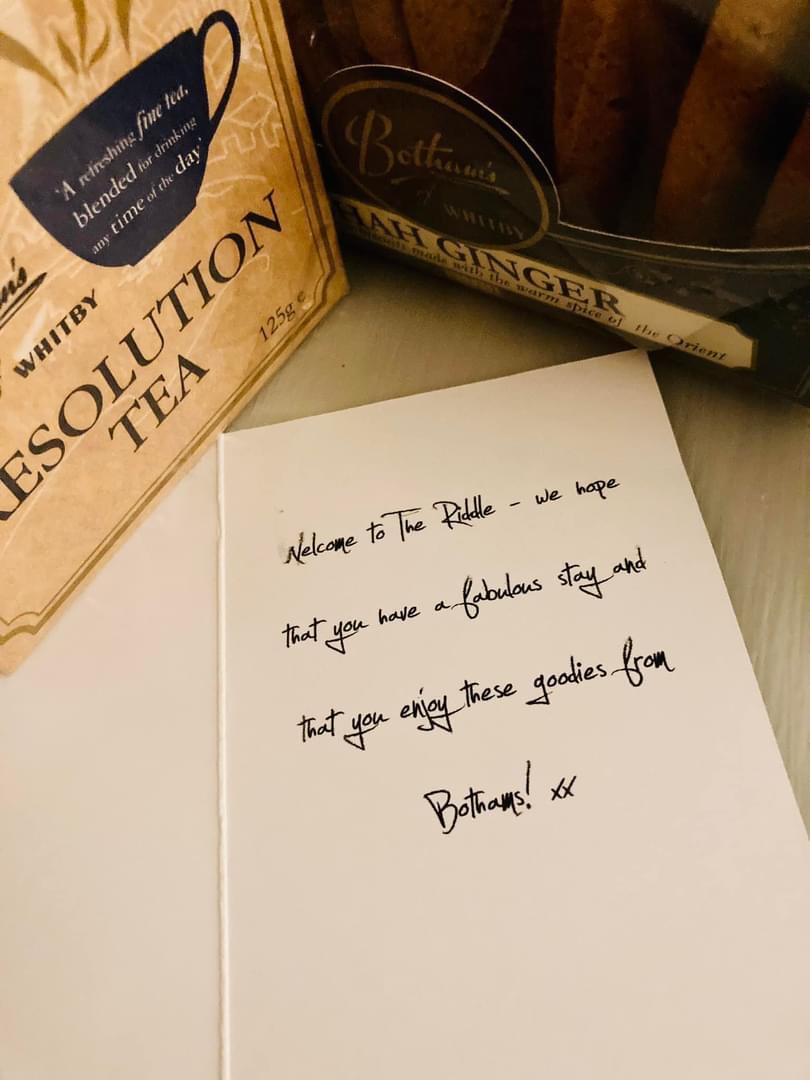 'A refreshing fine tea,
blended for drinking
any time of the day'
WHITBY
RESOLUTION
TEA
125g e
Botham's
of WHITBY
SHAH GINGER
biscuits made with the warm spice of the Orient
Welcome to The Riddle - we hope
that you have a fabulous stay and
that you enjoy these goodies from
Bothams! xx